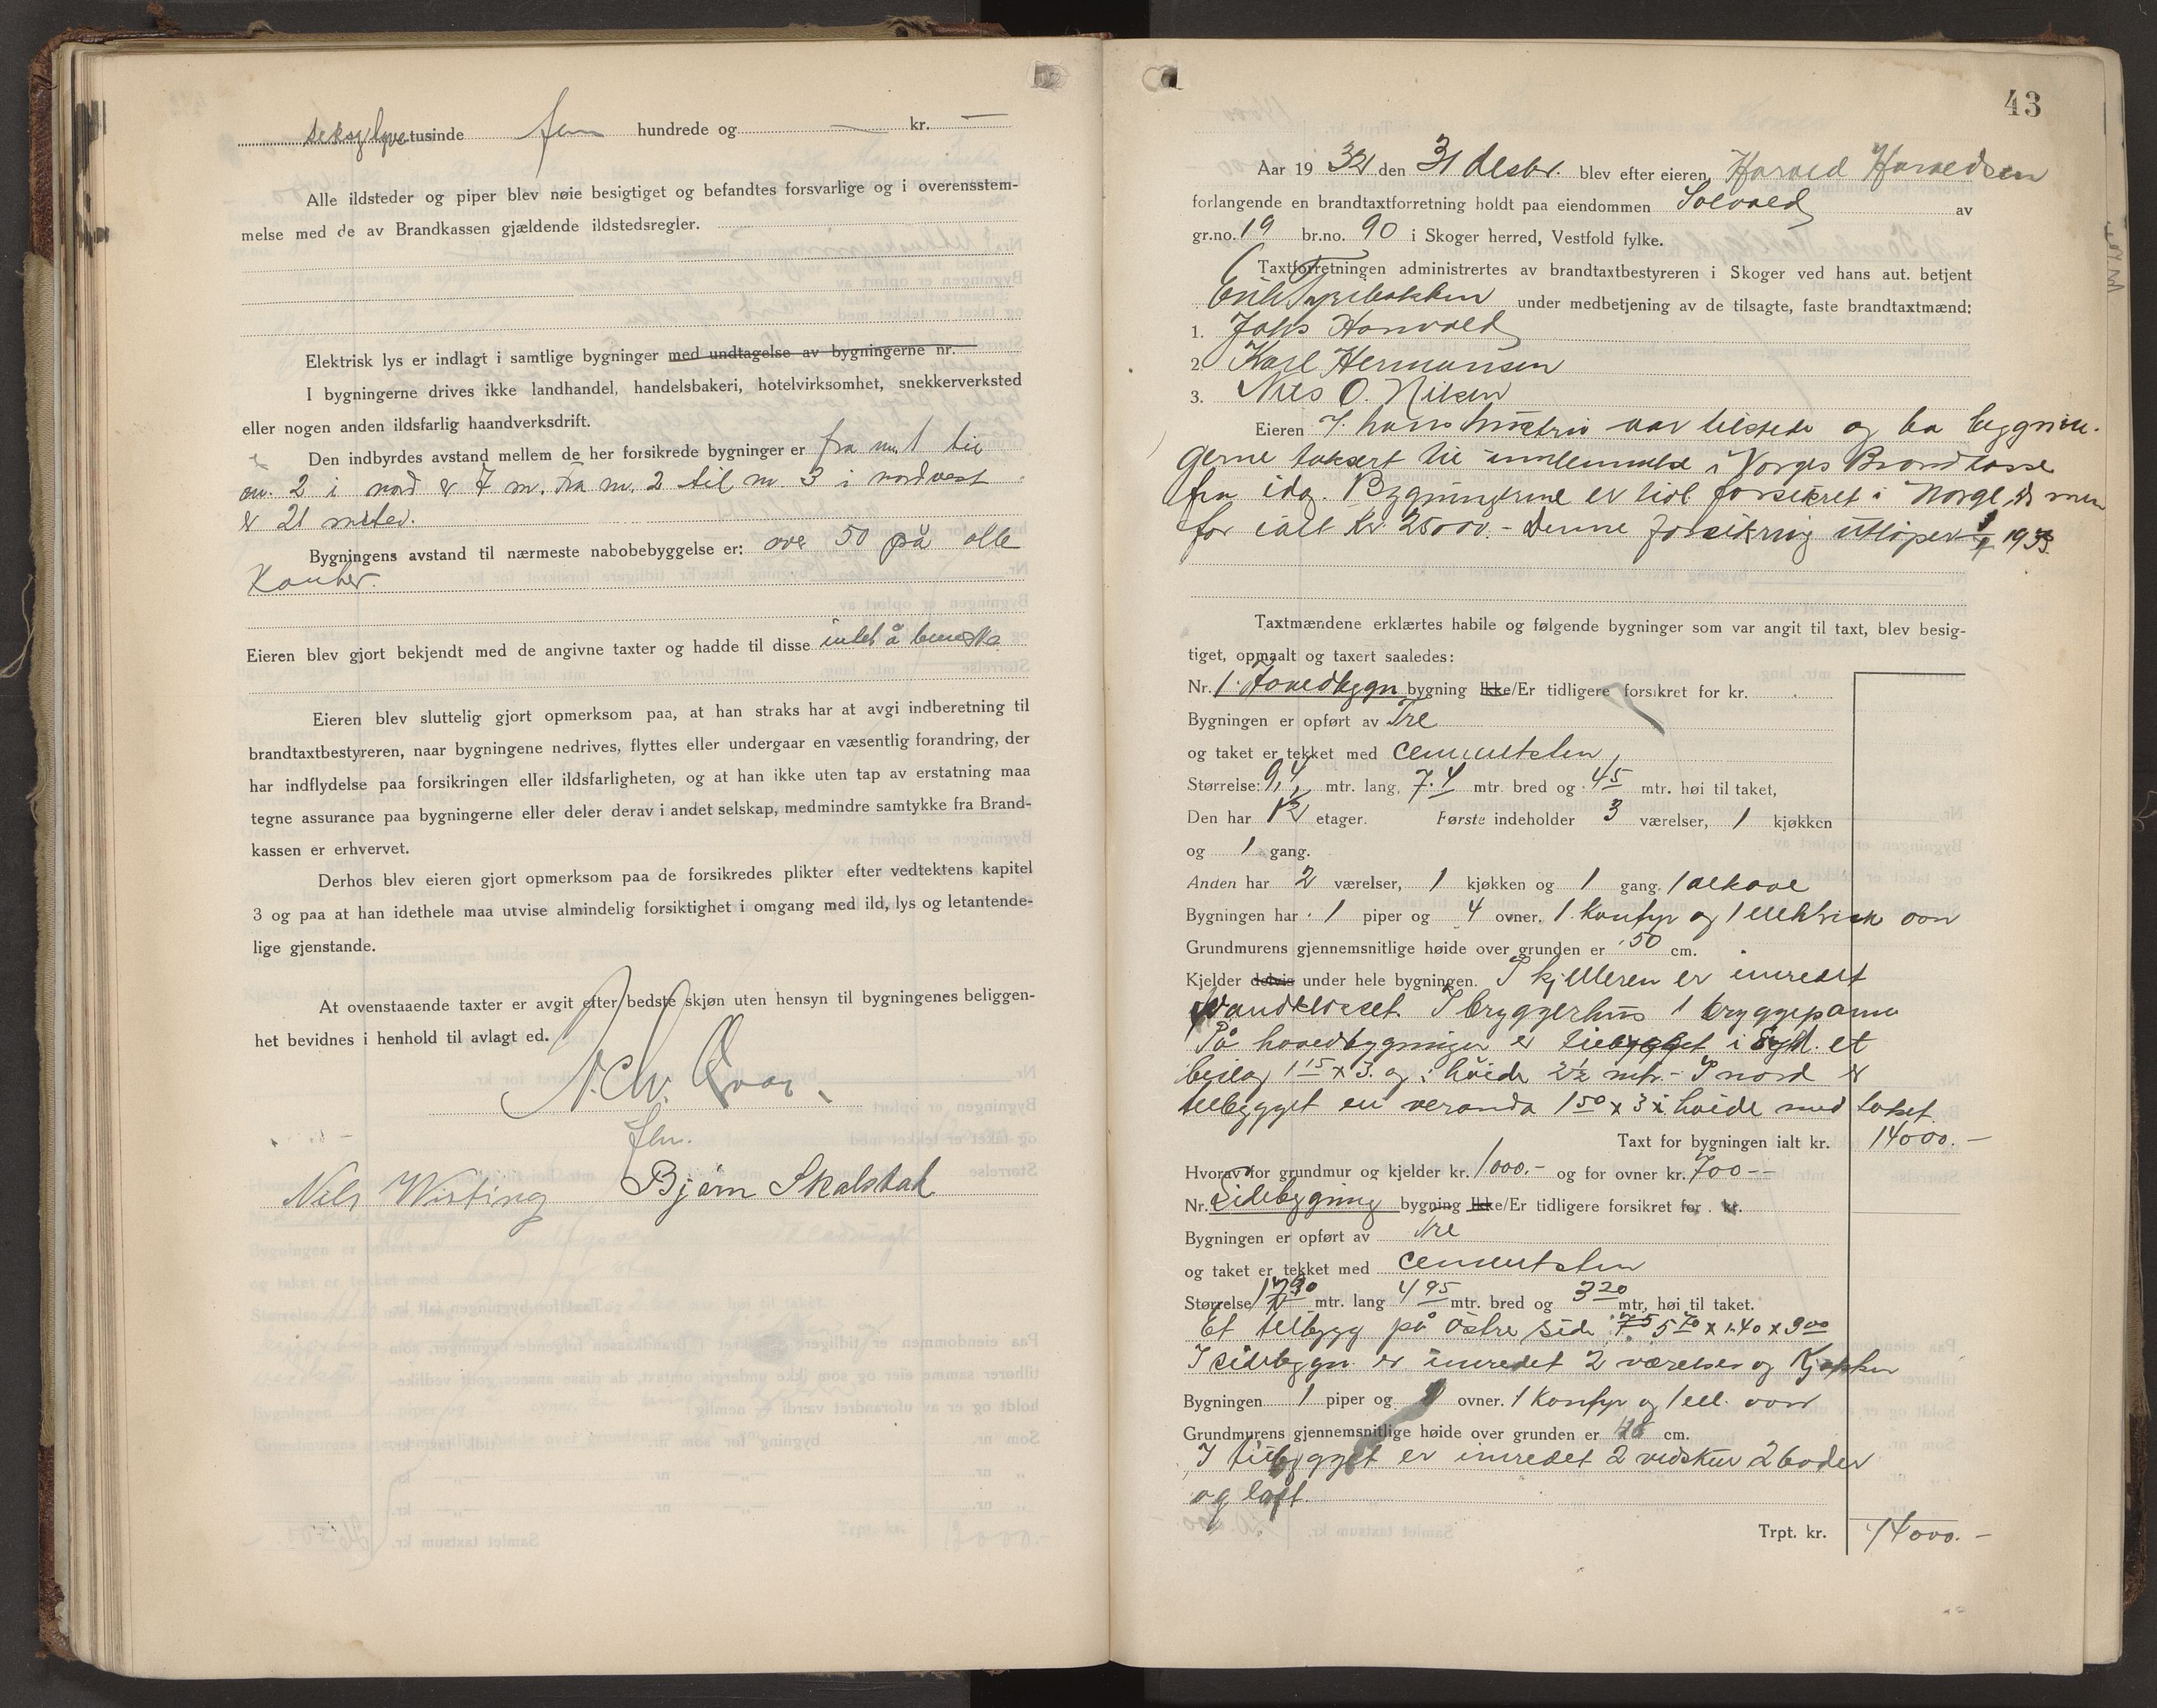 seksogtyve tusinde fem hundrede og — kr. —
Alle ildsteder og piper blev nøie besigtiget og befandtes forsvarlige og i overensstem-
melse med de av Brandkassen gjældende ildstedsregler.
Elektrisk lys er indlagt i samtlige bygninger med undtagelse av bygningerne nr.
I bygningerne drives ikke landhandel, handelsbakeri, hotelvirksomhet, snekkerverksted
eller nogen anden ildsfarlig haandverksdrift.
Den indbyrdes avstand mellem de her forsikrede bygninger er fra nr. 1 til
nr. 2 i nord er 7 m. Fra nr. 2 til nr. 3 i nordvest
er 21 meter.
Bygningens avstand til nærmeste nabobebyggelse er: over 50 på alle
Kanter.
Eieren blev gjort bekjendt med de angivne taxter og hadde til disse intet å bemerke
Eieren blev sluttelig gjort opmerksom paa, at han straks har at avgi indberetning til
brandtaxtbestyreren, naar bygningene nedrives, flyttes eller undergaar en væsentlig forandring, der
har indflydelse paa forsikringen eller ildsfarligheten, og at han ikke uten tap av erstatning maa
tegne assurance paa bygningerne eller deler derav i andet selskap, medmindre samtykke fra Brand-
kassen er erhvervet.
Derhos blev eieren gjort opmerksom paa de forsikredes plikter efter vedtektens kapitel
3 og paa at han idethele maa utvise almindelig forsiktighet i omgang med ild, lys og letantende-
lige gjenstande.
At ovenstaaende taxter er avgit efter bedste skjøn uten hensyn til bygningenes beliggen-
het bevidnes i henhold til avlagt ed.
Nils Wisting Bjørn Skalstad
43
Aar 19 32 den 31 desbr. blev efter eieren Harald Haraldsen
forlangende en brandtaxtforretning holdt paa eiendommen Solvold av
gr.no. 19 br.no. 90 i Skoger herred, Vestfold fylke.
Taxtforretningen administrertes av brandtaxtbestyreren i Skoger ved hans aut. betjent
under medbetjening av de tilsagte, faste brandtaxtmænd:
1. Johs Hanvold
2 Karl Hermansen
3. Nils O. Nilsen
Eieren s. hans hustru var tilstede og ba bygnin-
gerne taksert til innlemmelse i Norges Brandkasse
fra idag. Bygningerne er tidl. forsikret i Norge
for ialt Kr. 25000.- Denne forsikring utløper 1933.
Taxtmændene erklærtes habile og følgende bygninger som var angit til taxt, blev besig-
tiget, opmaalt og taxert saaledes:
Nr. 1. Hovedbygn bygning Ikke/Er tidligere forsikret for kr.
Bygningen er opført av Tre
og taket er tekket med cementsten
Størrelse: 9,4 mtr. lang, 7.4 mtr. bred og 45 mtr. høi til taket,
Den har 1½ etager. Første indeholder 3 værelser, 1 kjøkken
og 1 gang.
Anden har 2 værelser, 1 kjøkken og 1 gang. 1 alkove
Bygningen har 1 piper og 4 ovner. 1 Komfyr og 1 elektrisk ovn
Grundmurens gjennemsnitlige høide over grunden er 50 cm.
Kjelder delvis under hele bygningen. I kjelleren er innredet
Vandklosset. I bryggerhus 1 bryggepanne
På hovedbygningen er tilbygget i Syd. et
bislag 1 15 x 3. og i høide 2½ mtr.- I nord er
tilbygget en veranda 1 50 x 3 i høide med taket
Taxt for bygningen ialt kr. 14000.-
Hvorav for grundmur og kjelder kr. 1000.- og for ovner kr. 700--
Nr. Sidebygning bygning Ikke/Er tidligere forsikret for kr.
Bygningen er opført av Tre
og taket er tekket med cementsten
Størrelse mtr. lang 4 95 mtr. bred og 3 20 mtr. høi til taket.
Et tilbygg på østre side 5 70 x 1.40 x 3 00
I sidebygn. er innredet 2 værelser og Kjøkken
Bygningen 1 piper og ovner. 1 Komfyr og 1 ell. ovn
Grundmurens gjennemsnitlige høide over grunden er cm.
I tilbygget er innredet 2 vedskur 2 boder
og loft.
Trpt. kr. 14000.-